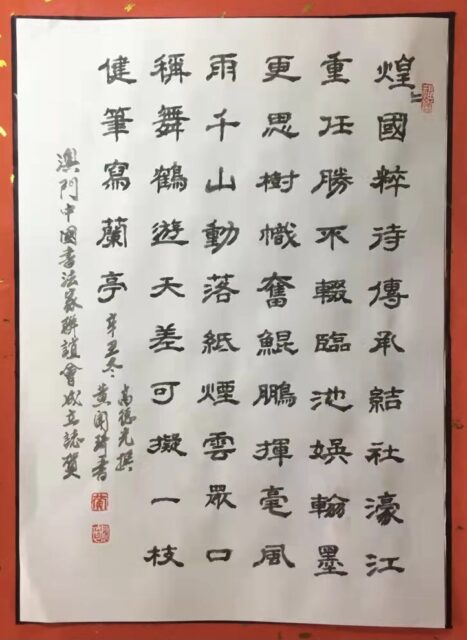 煌〻國粹待傳承結社濠江
重任勝不輟臨池娛翰墨
更思樹幟奮鯤鵬揮毫風
雨千山動落紙煙雲眾口
稱舞鶴遊天差可擬一枝
健筆寫蘭亭
辛丑冬
高德光撰
書
澳門中國書法家聯誼會成立誌賀